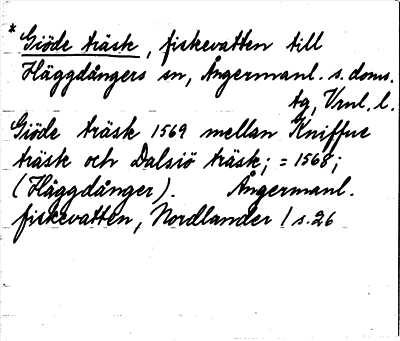 * Giöde träsk, fiskevatten till
Häggdångers sn, Ångermanl. s. doms.
tg, Vrnl. l.
Giöde träsk 1569 mellan Kniffue
träsk och Dalsiö träsk; = 1568;
(Häggdånger). Ångermanl.
fiskevatten, Nordlander / s. 26